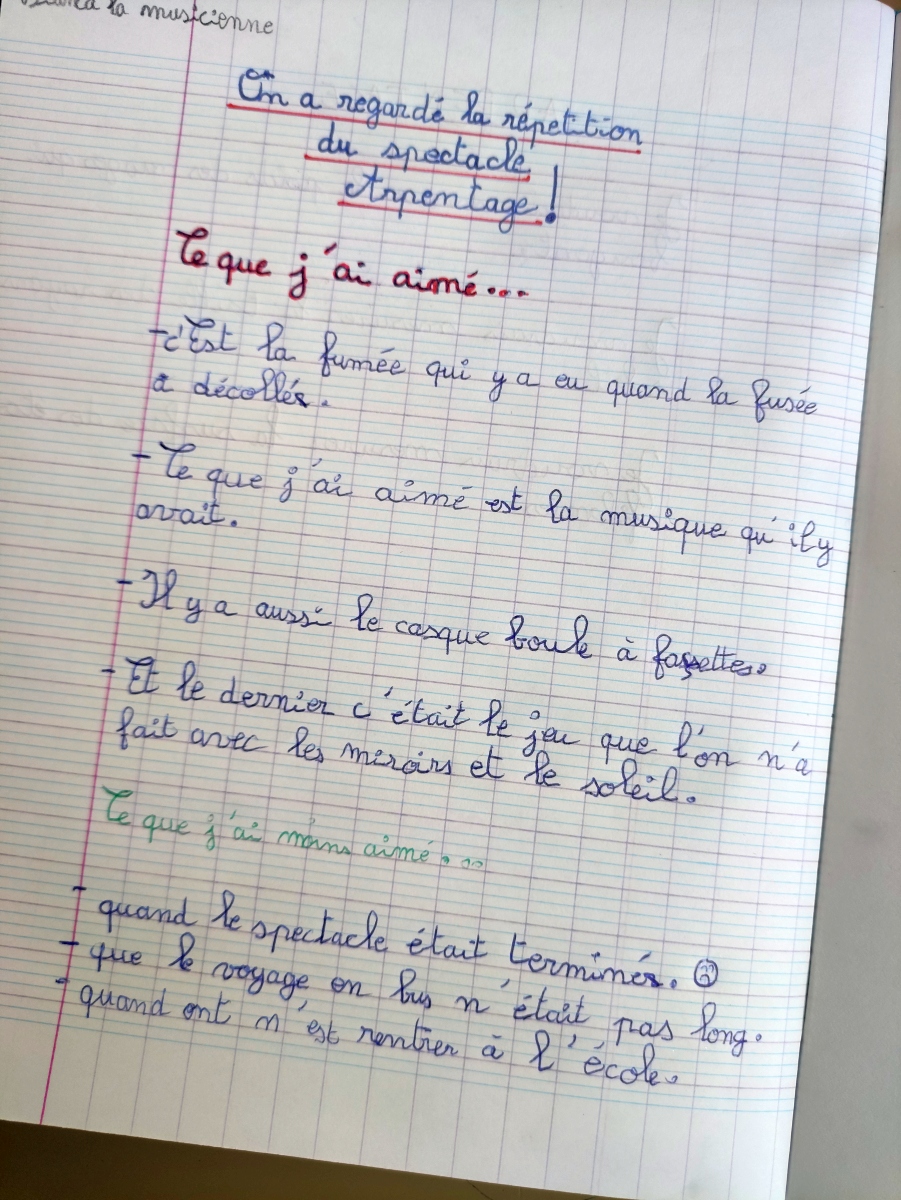 la musicienne
On a regardé la répetition
du spectacle
Arpentage !
Ce que j'ai aimé...
- c'Est la fumée qui y a eu quand la fusée
a décollés.
- Ce que j'ai aimé est la musique qu'il y
avait.
- Il y a aussi le casque boule à fassettes.
- Et le dernier c'était le jeu que l'on n'a
fait avec les miroirs et le soleil.
Ce que j'ai moins aimé...
- quand le spectacle était terminés. ☹
- que le voyage en bus n'était pas long.
- quand ont n'est rentrer à l'école.